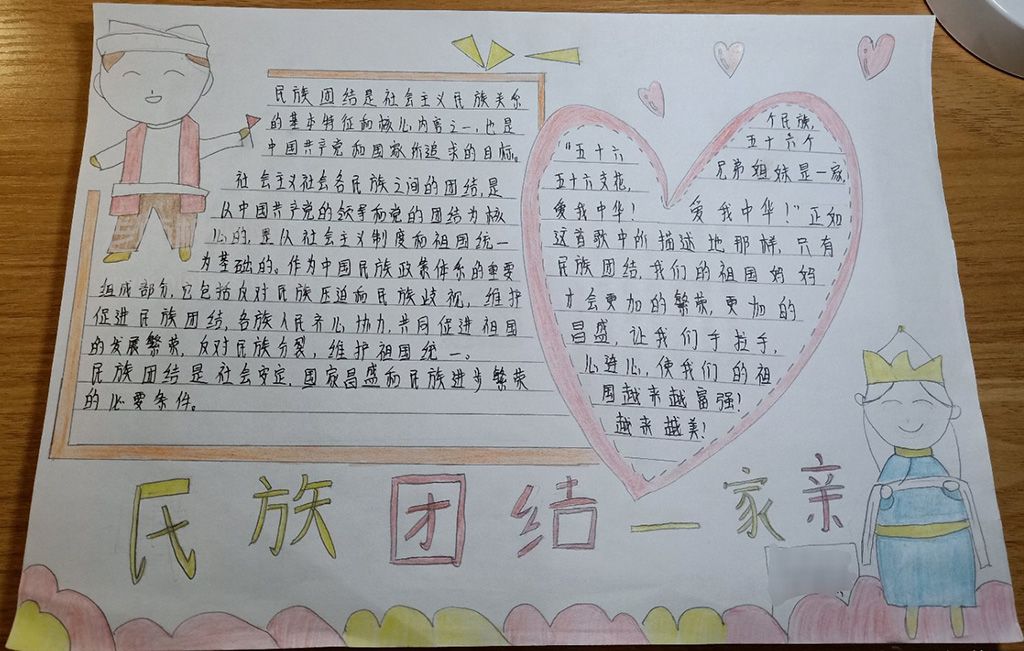 民族团结是社会主义民族关系
的基本特征和核心内容之一,也是
中国共产党和国家所追求的目标。
社会主义社会各民族之间的团结,是
以中国共产党的领导和党的团结为核
心的,是以社会主义制度和祖国统一
为基础的。作为中国民族政策体系的重要
组成部分,它包括反对民族压迫和民族歧视,维护
促进民族团结,各族人民齐心协力,共同促进祖国
的发展繁荣,反对民族分裂,维护祖国统一。
民族团结是社会安定,国家昌盛和民族进步繁荣
的必要条件。
个民族,
“五十六 五十六个
五十六支花, 兄弟姐妹是一家,
爱我中华! 爱我中华!”正如
这首歌中所描述地那样,只有
民族团结,我们的祖国妈妈
才会更加的繁荣,更加的
昌盛,让我们手拉手,
心连心,使我们的祖
国越来越富强!
越来越美!
民族团结一家亲